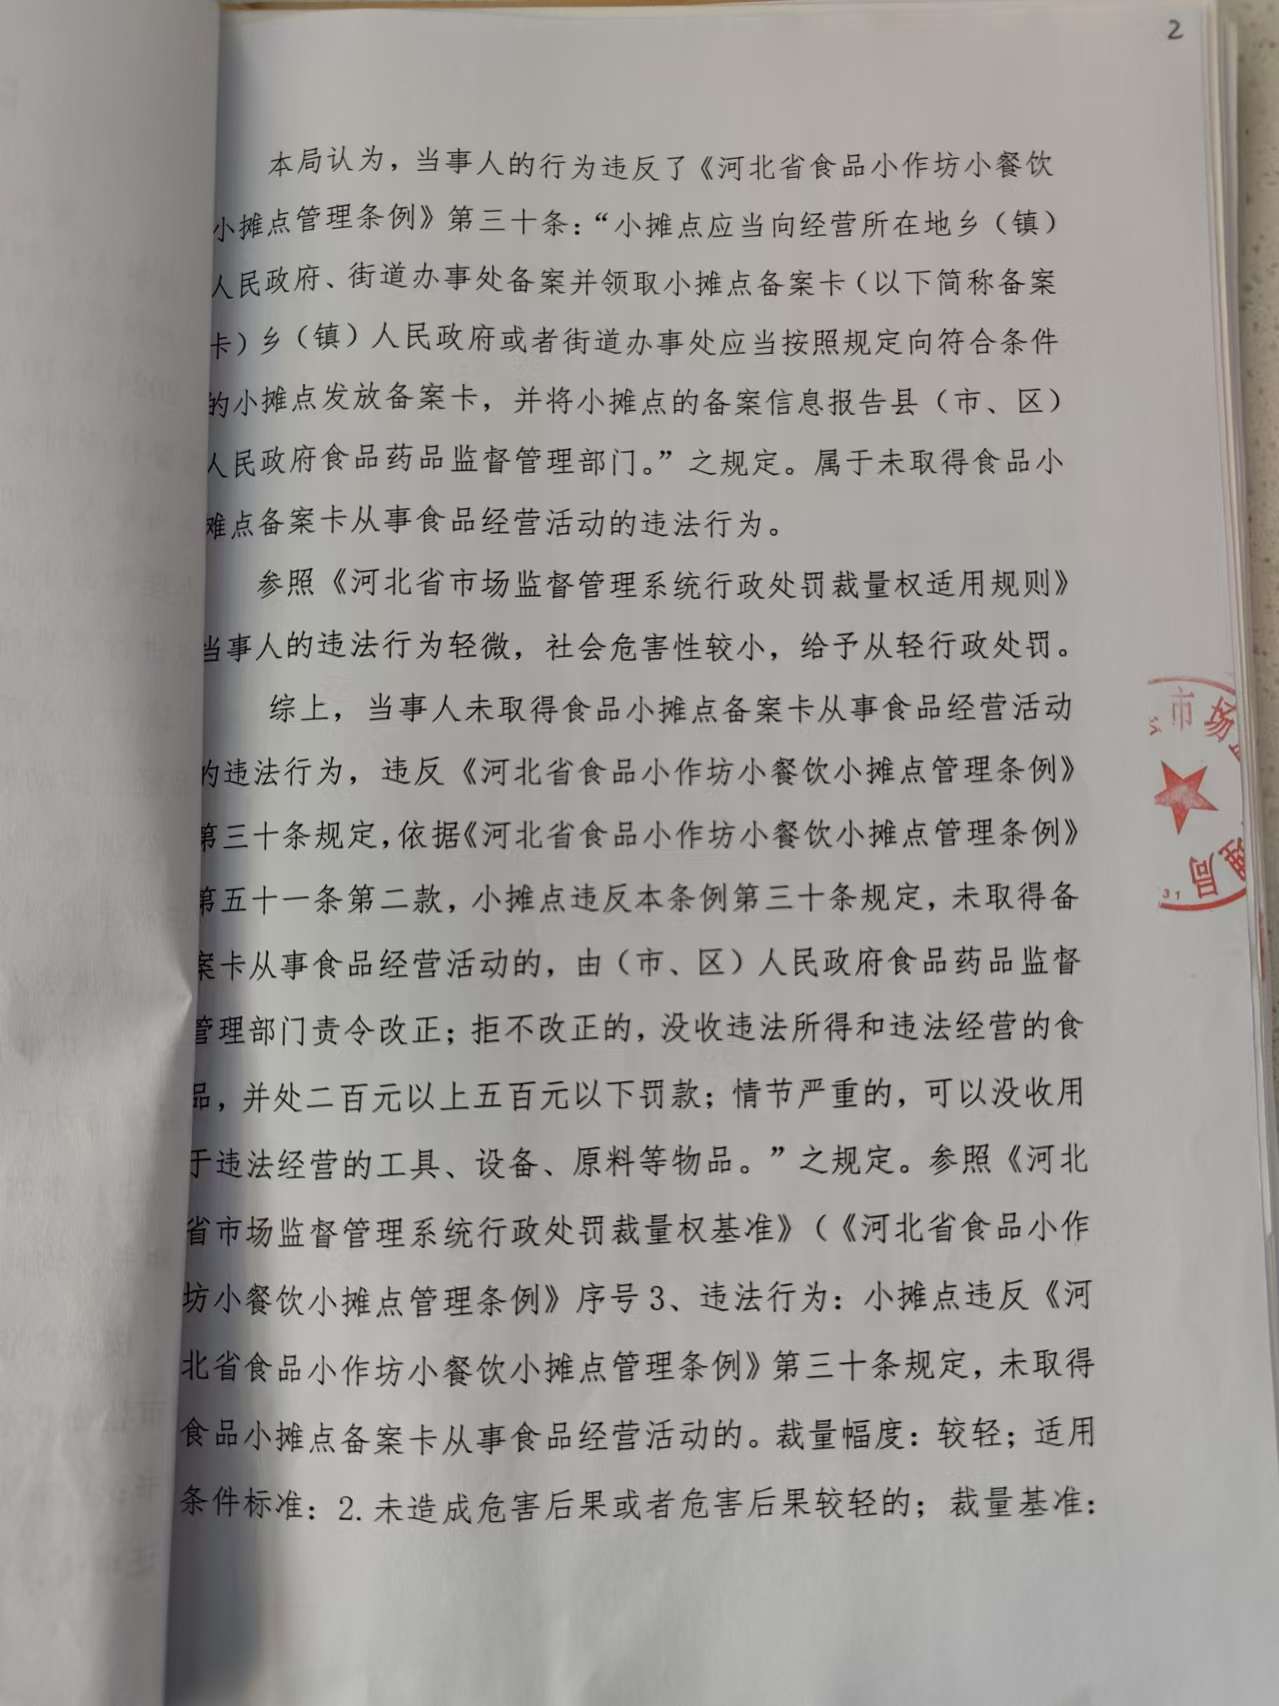 2
本局认为，当事人的行为违反了《河北省食品小作坊小餐饮
小摊点管理条例》第三十条：“小摊点应当向经营所在地乡（镇）
人民政府、街道办事处备案并领取小摊点备案卡（以下简称备案
卡）乡（镇）人民政府或者街道办事处应当按照规定向符合条件
的小摊点发放备案卡，并将小摊点的备案信息报告县（市、区）
人民政府食品药品监督管理部门。”之规定。属于未取得食品小
摊点备案卡从事食品经营活动的违法行为。
参照《河北省市场监督管理系统行政处罚裁量权适用规则》
当事人的违法行为轻微，社会危害性较小，给予从轻行政处罚。
综上，当事人未取得食品小摊点备案卡从事食品经营活动
的违法行为，违反《河北省食品小作坊小餐饮小摊点管理条例》
第三十条规定，依据《河北省食品小作坊小餐饮小摊点管理条例》
第五十一条第二款，小摊点违反本条例第三十条规定，未取得备
案卡从事食品经营活动的，由（市、区）人民政府食品药品监督
管理部门责令改正；拒不改正的，没收违法所得和违法经营的食
品，并处二百元以上五百元以下罚款；情节严重的，可以没收用
于违法经营的工具、设备、原料等物品。”之规定。参照《河北
省市场监督管理系统行政处罚裁量权基准》（《河北省食品小作
坊小餐饮小摊点管理条例》序号3、违法行为：小摊点违反《河
北省食品小作坊小餐饮小摊点管理条例》第三十条规定，未取得
食品小摊点备案卡从事食品经营活动的。裁量幅度：较轻；适用
条件标准：2.未造成危害后果或者危害后果较轻的；裁量基准：
市场监
理局
31